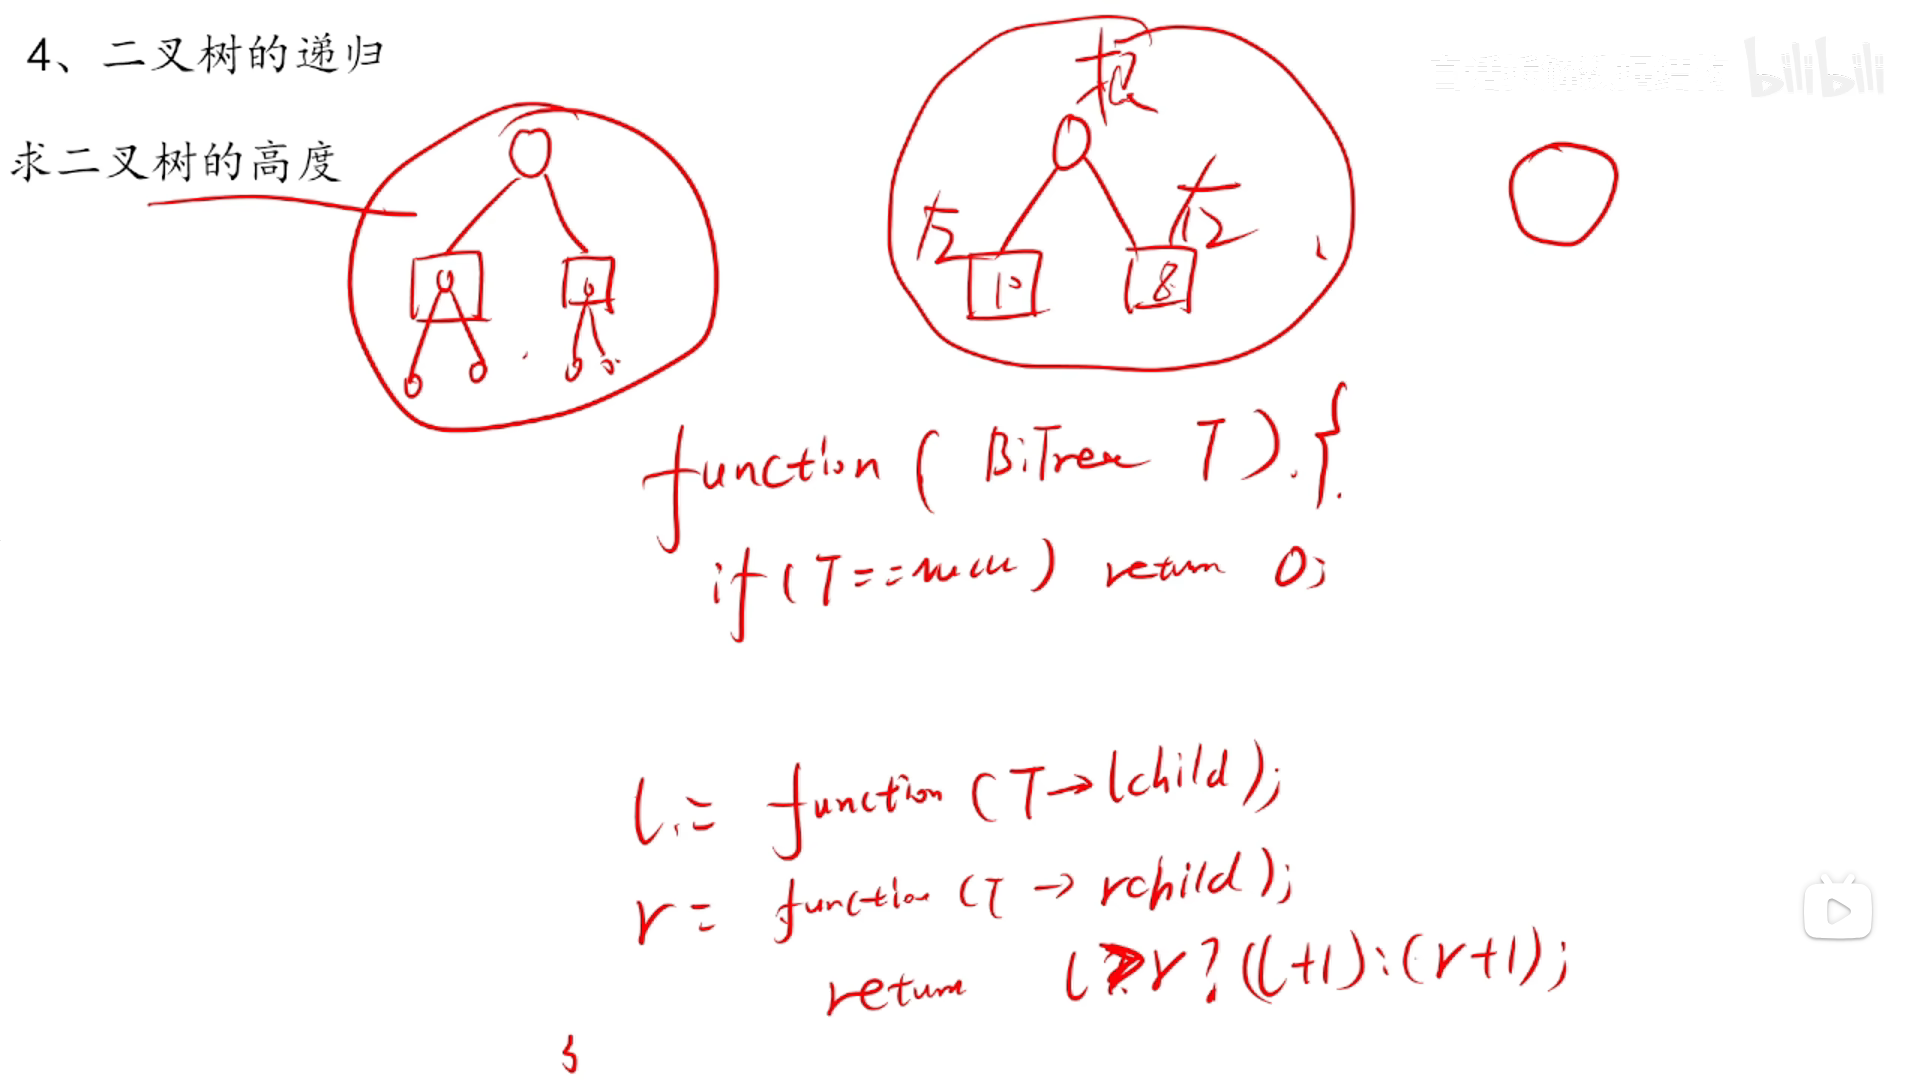 4、二叉树的递归
求二叉树的高度
bilibili
根
左
右
10
8
function ( BiTree T ) {
if ( T == null ) return 0;
l = function ( T → lchild );
r = function ( T → rchild );
return l > r ? (l+1) : (r+1);
}